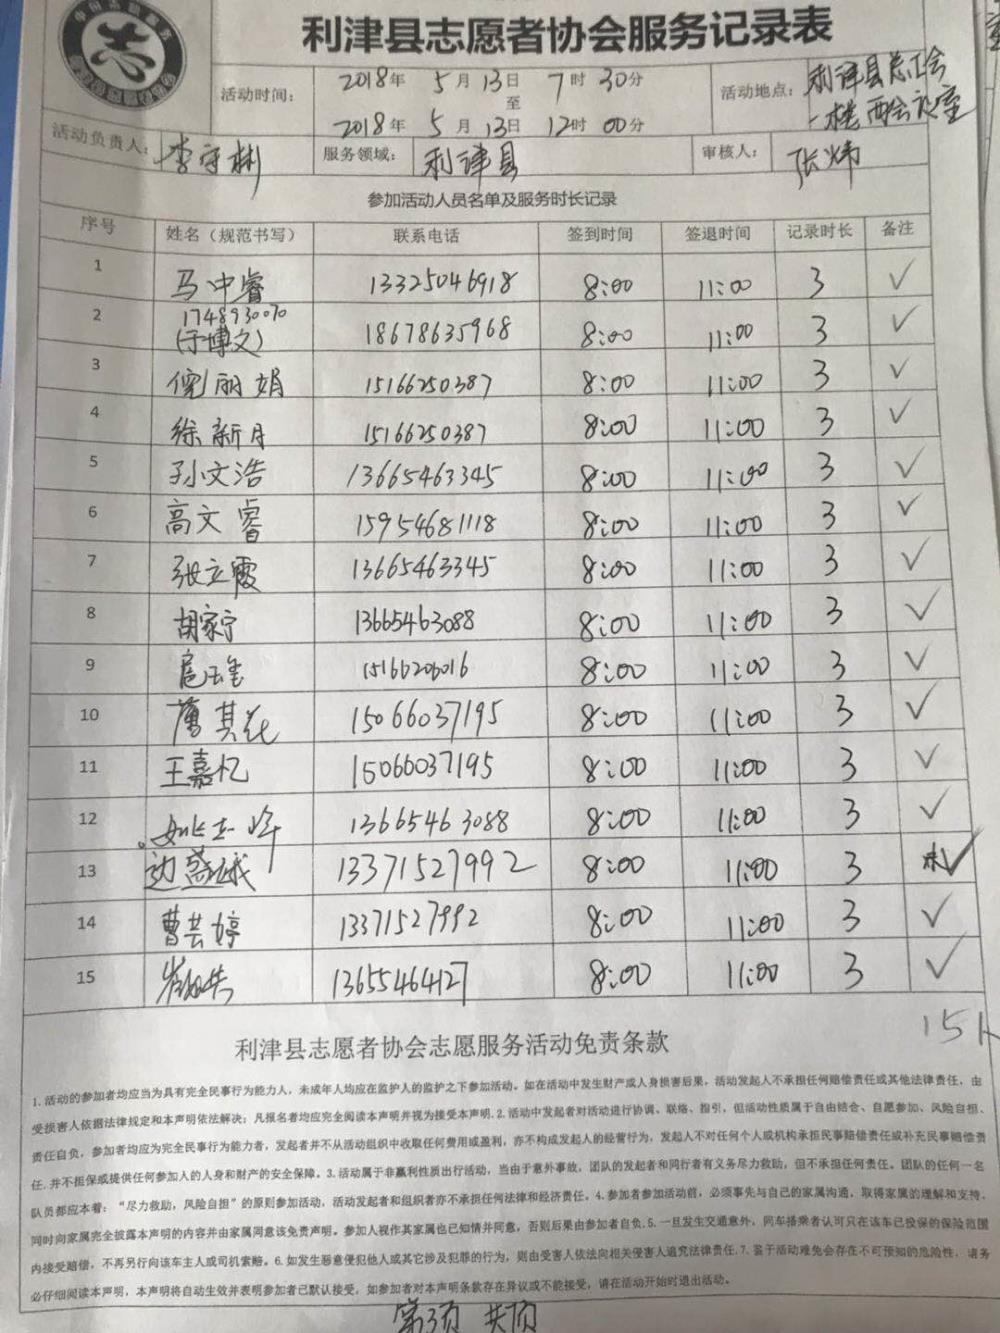 利津县志愿者协会服务记录表
志
活动时间: 2018年 5月13日 7时30分
至
2018年 5月13日 12时00分
活动地点: 利津县总工会
一楼西会议室
活动负责人: 李守彬 服务领域: 利津县 审核人: 张炜
参加活动人员名单及服务时长记录
序号 姓名（规范书写） 联系电话 签到时间 签退时间 记录时长 备注
1 马中睿 13325046918 8:00 11:00 3 ✓
2 1748930070 (于博文) 18678635968 8:00 11:00 3 ✓
3 倪丽娟 15166250387 8:00 11:00 3 ✓
4 徐新月 15166250387 8:00 11:00 3 ✓
5 孙文浩 13665463345 8:00 11:00 3 ✓
6 高文睿 15954681118 8:00 11:00 3 ✓
7 张立霞 13665463345 8:00 11:00 3 ✓
8 胡家宁 13665463088 8:00 11:00 3 ✓
9 15166206016 8:00 11:00 3 ✓
10 其花 15066037195 8:00 11:00 3 ✓
11 王嘉忆 15066037195 8:00 11:00 3 ✓
12 姚志峰 13665463088 8:00 11:00 3 ✓
13 边 13371527992 8:00 11:00 3 ✓
14 曹芸婷 13371527992 8:00 11:00 3 ✓
15 13655464127 8:00 11:00 3 ✓
15人
利津县志愿者协会志愿服务活动免责条款
1.活动的参加者均应当为具有完全民事行为能力人，未成年人均应在监护人的监护之下参加活动。如在活动中发生财产或人身损害后果，活动发起人不承担任何赔偿责任或其他法律责任，由
受损害人依据法律规定和本声明依法解决；凡报名者均应完全阅读本声明并视为接受本声明.2.活动中发起者对活动进行协调、联络、指引，但活动性质属于自由结合、自愿参加、风险自担、
责任自负，参加者均应为完全民事行为能力者，发起者并不从活动组织中收取任何费用或盈利，亦不构成发起人的经营行为，发起人不对任何个人或机构承担民事赔偿责任或补充民事赔偿责
任.并不担保或提供任何参加人的人身和财产的安全保障。3.活动属于非赢利性质出行活动，当由于意外事故，团队的发起者和同行者有义务尽力救助，但不承担任何责任。团队的任何一名
队员都应本着：“尽力救助，风险自担”的原则参加活动，活动发起者和组织者亦不承担任何法律和经济责任。4.参加者参加活动前，必须事先与自己的家属沟通，取得家属的理解和支持、
同时向家属完全披露本声明的内容并由家属同意该免责声明。参加人视作其家属也已知情并同意，否则后果由参加者自负.5.一旦发生交通意外，同车搭乘者认可只在该车已投保的保险范围
内接受赔偿，不再另行向该车主人或司机索赔。6.如发生恶意侵犯他人或其它涉及犯罪的行为，则由受害人依法向相关侵害人追究法律责任.7.鉴于活动难免会存在不可预知的危险性，请务
必仔细阅读本声明，本声明将自动生效并表明参加者已默认接受，如参加者对本声明条款存在异议或不能接受，请在活动开始时退出活动。
第3页 共 页